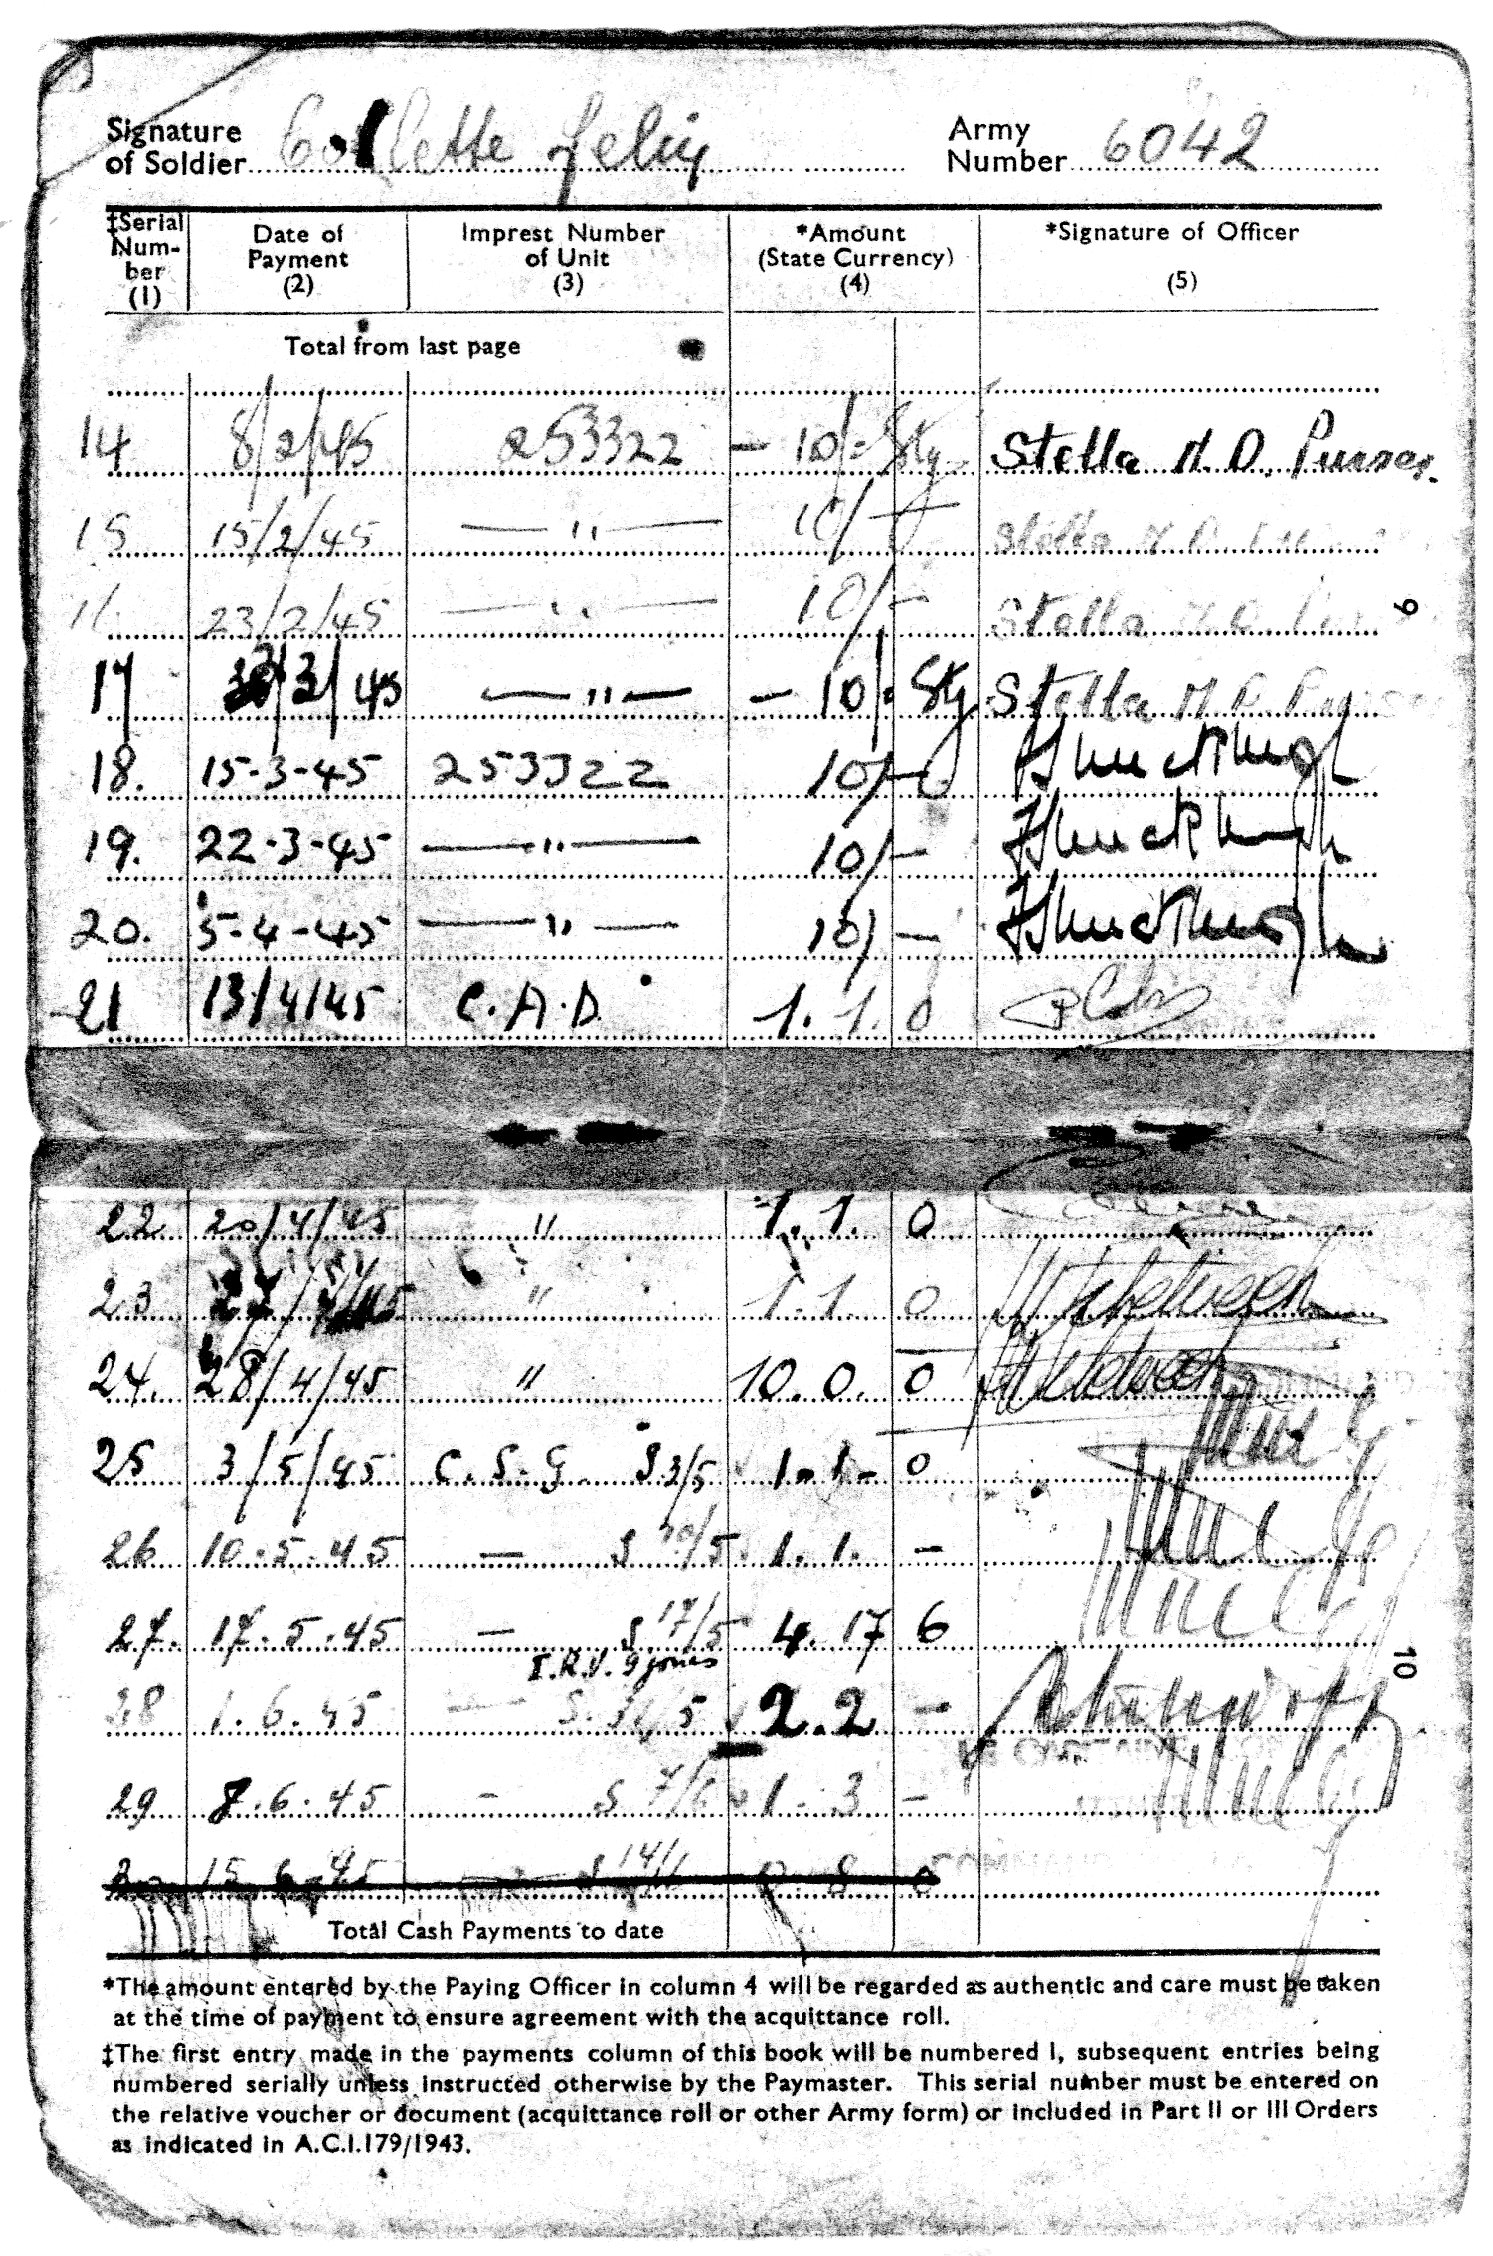 Signature of Soldier Collette Felix Army Number 6042
‡Serial Num- ber (1) Date of Payment (2) Imprest Number of Unit (3) *Amount (State Currency) (4) *Signature of Officer (5)
Total from last page
14 8/2/45 253322 - 10/- Stg Stella M. D. Purser.
15 15/2/45 — " — 10/- Stella M. D.
16 23/2/45 — " — 10/- Stella M. D.
9
17 /3/45 — " — - 10/- Stg Stella M. D. Purser
18. 15-3-45 253322 10/-
19. 22-3-45 — " — 10/-
20. 5-4-45 — " — 10/-
21 13/4/45 C.A.D. 1. 1. 0
22 20/4/45 " 1. 1. 0
23 27/4/45 " 1. 1. 0
24. 28/4/45 " 10. 0. 0
25 3/5/45 C.S.G. S 3/5 1. 1. 0
26 10.5.45 — S 10/5 1. 1. -
27. 17.5.45 — S 17/5 4. 17 6
10
28 1.6.45 — S. 31/5 2. 2 -
29 8.6.45 - S 7/6 1. 3 -
30 15.6.45 — S 14/6 0 8 0
Total Cash Payments to date
*The amount entered by the Paying Officer in column 4 will be regarded as authentic and care must be taken
at the time of payment to ensure agreement with the acquittance roll.
‡The first entry made in the payments column of this book will be numbered 1, subsequent entries being
numbered serially unless instructed otherwise by the Paymaster. This serial number must be entered on
the relative voucher or document (acquittance roll or other Army form) or included in Part II or III Orders
as indicated in A.C.I.179/1943.